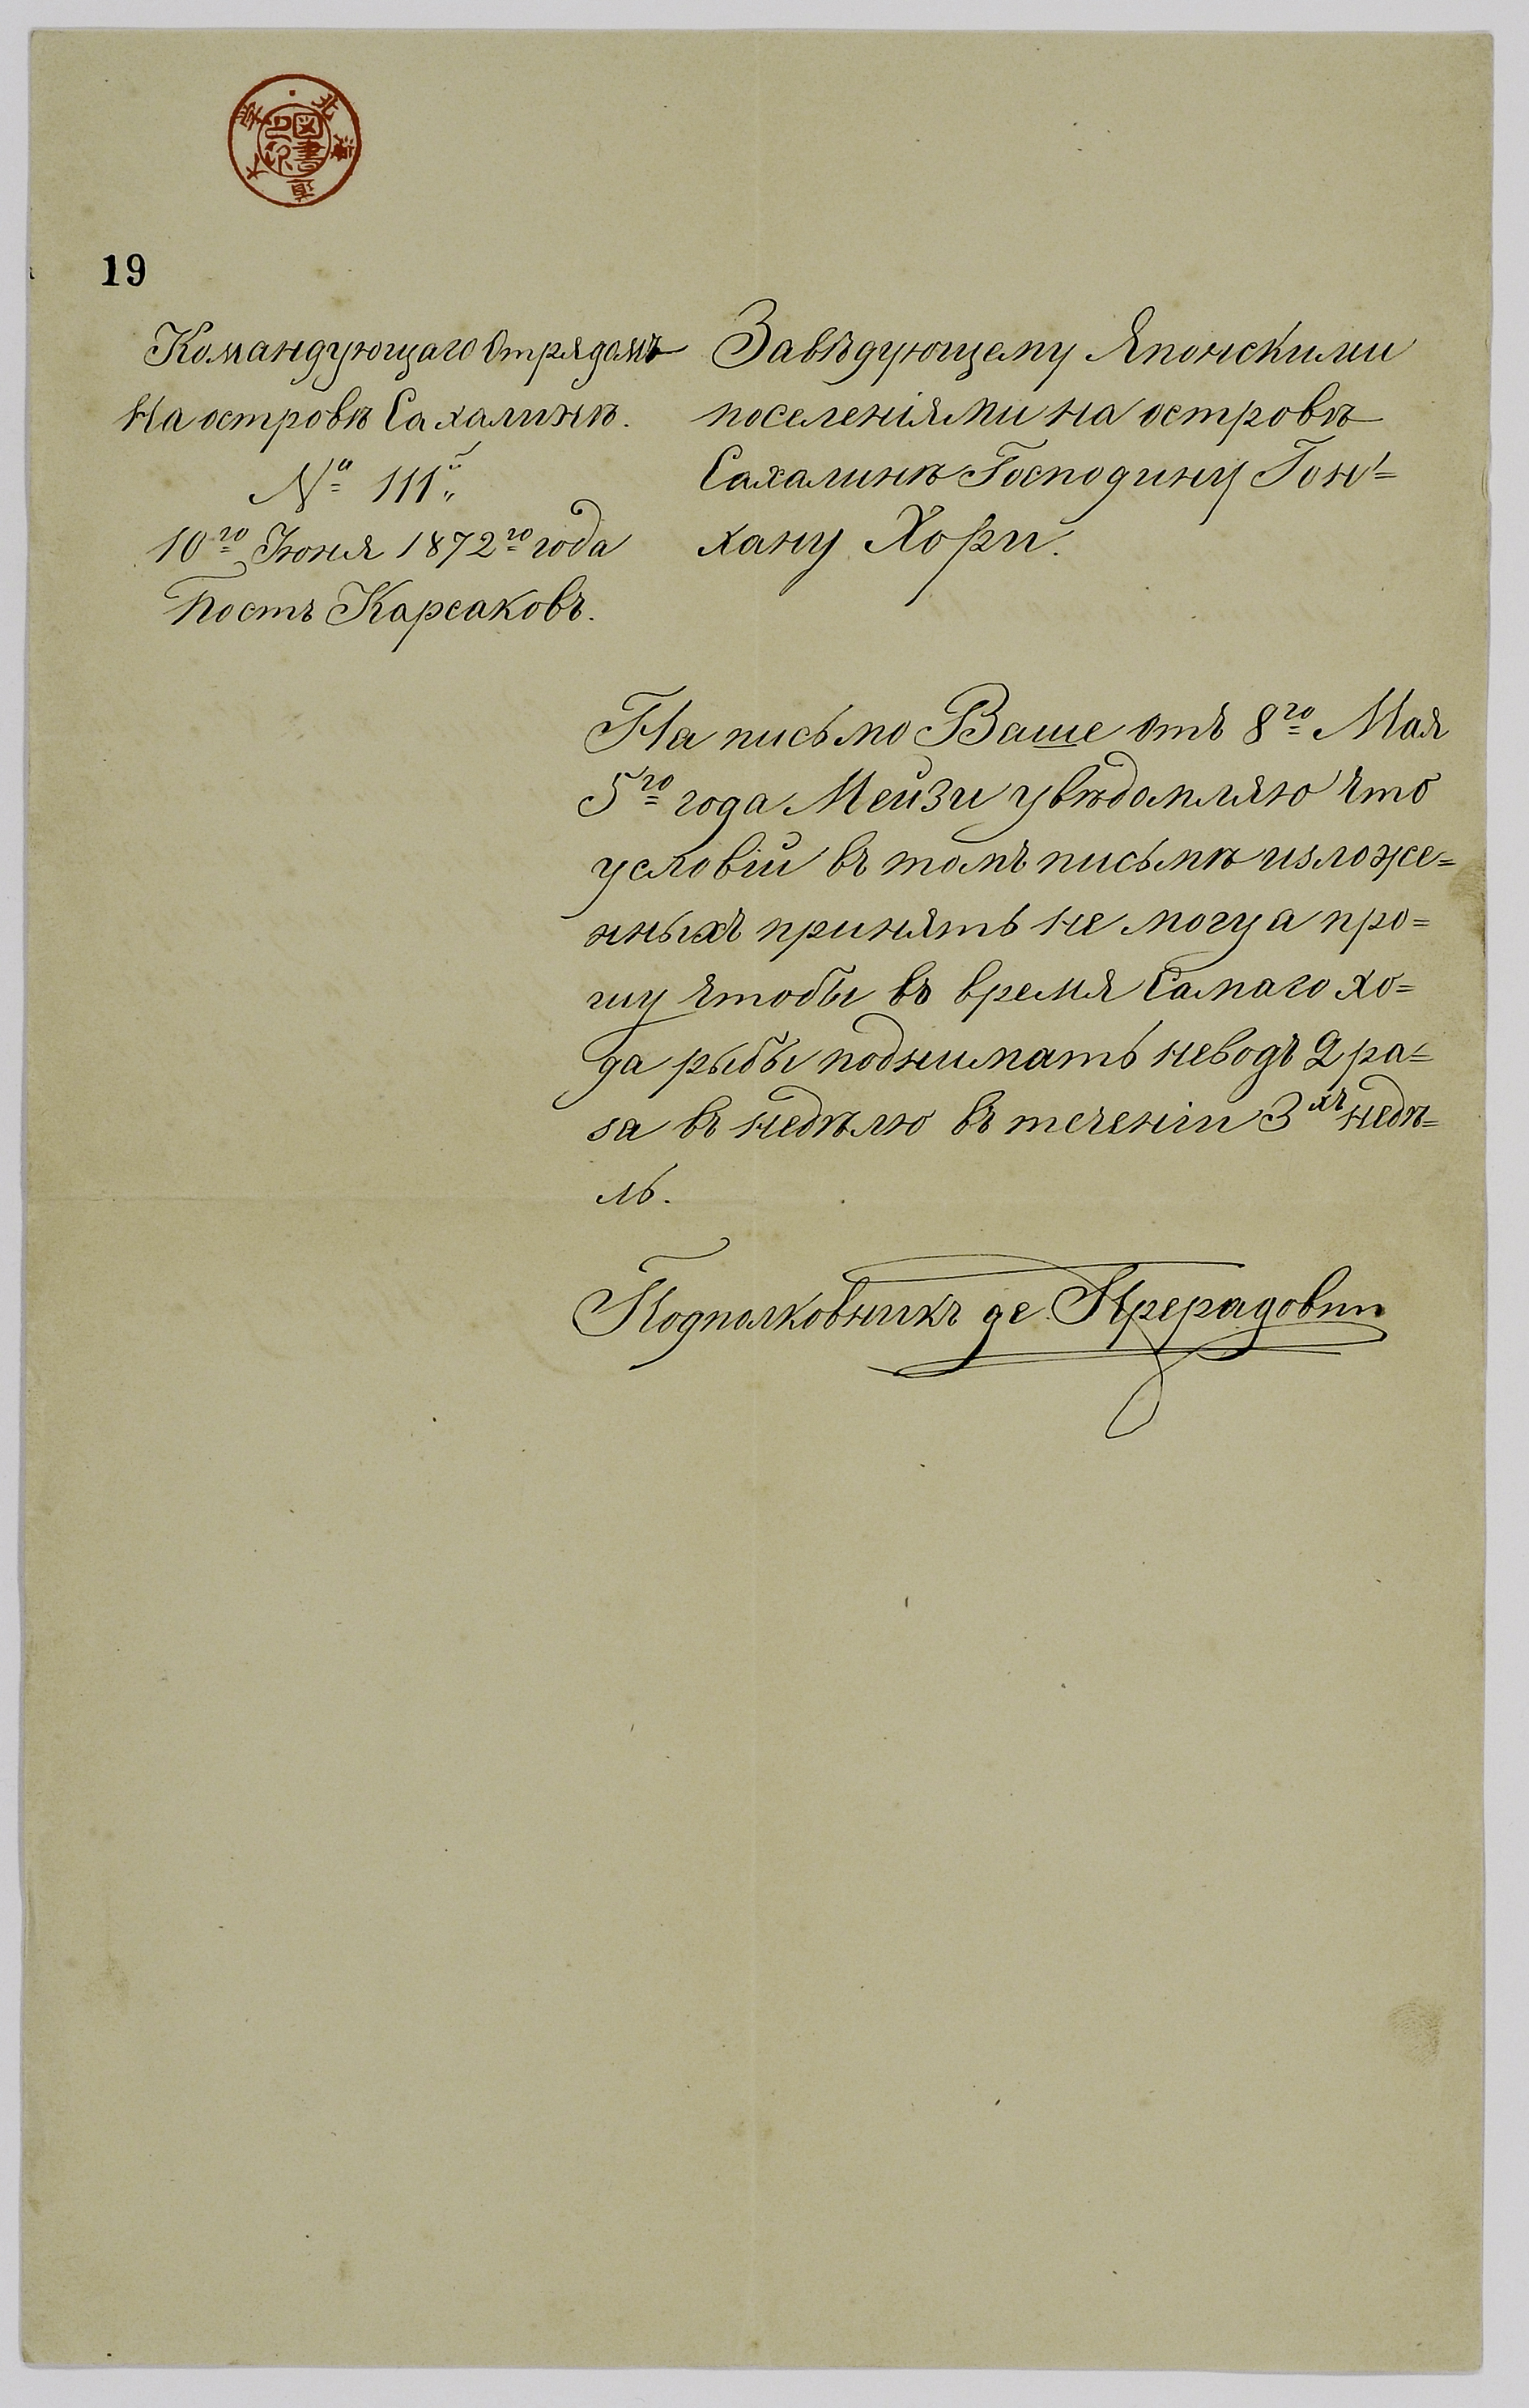 北海道大學
圖書印
19
Командующаго Отрядомъ
На островѣ Сахалинѣ.
№ 111
10го Июня 1872го года
Постъ Карсаковъ.
Завѣдующему Японскими
поселеніями на островѣ
Сахалинѣ Господину Гон'=
хану Хори.
На письмо Ваше отъ 8го Мая
5го года Мейзи увѣдомляю что
условій въ томъ письмѣ изложе=
нныхъ принять не могу а про=
шу чтобы въ время Самаго хо=
да рыбы поднимать неводъ 2 ра=
за въ недѣлю въ теченіи 3хъ недѣ=
ль.
Подполковникъ де Прерадович